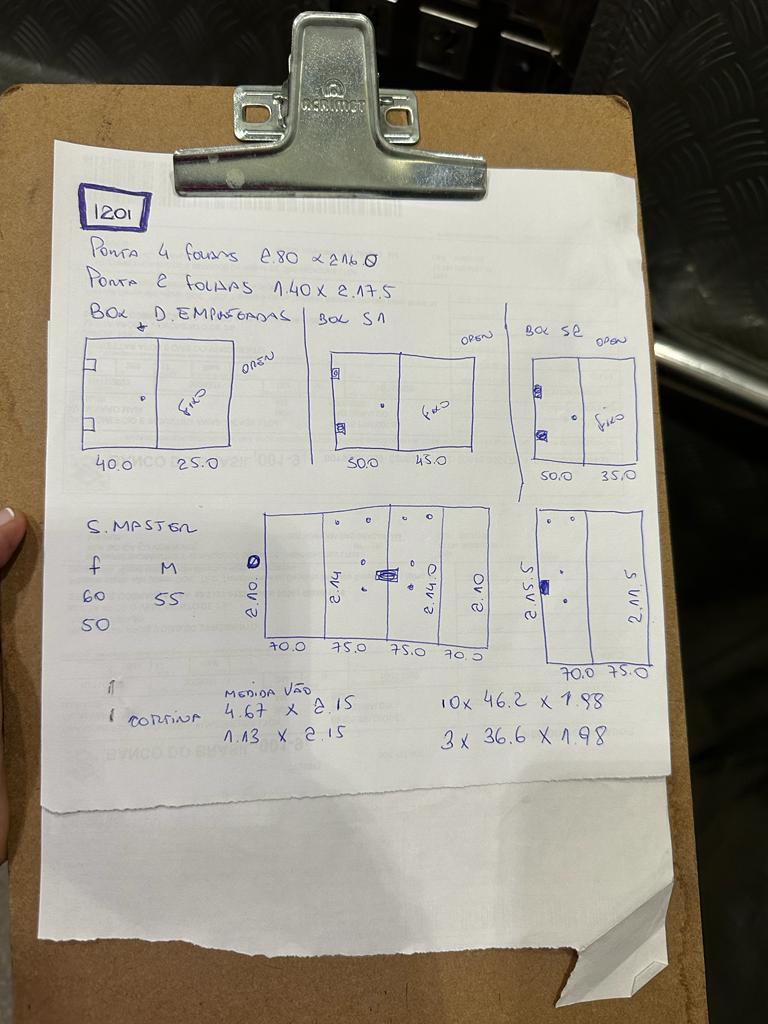 ACRIMET
1201
PORTA 4 FOLHAS 2.80 x 2.16.0
PORTA 2 FOLHAS 1.40 x 2.17.5
BOX D. EMPREGADAS
BOX S1
BOX S2
OPEN
OPEN
OPEN
FIXO
FIXO
FIXO
40.0 25.0
50.0 45.0
50.0 35.0
S. MASTER
f M
60 55
50
2.10.0
2.14
2.14.0
2.10
2.15.5
2.11.5
70.0 75.0 75.0 70.0
70.0 75.0
MEDIDA VÃO
CORTINA 4.67 x 2.15
1.13 x 2.15
10x 46.2 x 1.98
3x 36.6 x 1.98